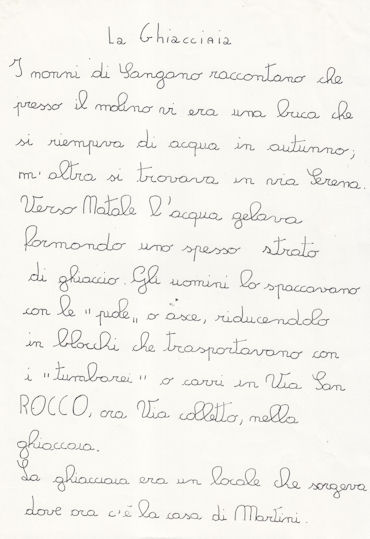 La Ghiacciaia
I nonni di Sangano raccontano che
presso il molino vi era una buca che
si riempiva di acqua in autunno;
un'altra si trovava in via Serena.
Verso Natale l'acqua gelava
formando uno spesso strato
di ghiaccio. Gli uomini lo spaccavano
con le "piole" o asce, riducendolo
in blocchi che trasportavano con
i "tumbarei" o carri in Via San
ROCCO, ora Via colletto, nella
ghiacciaia.
La ghiacciaia era un locale che sorgeva
dove ora c'è la casa di Martini.